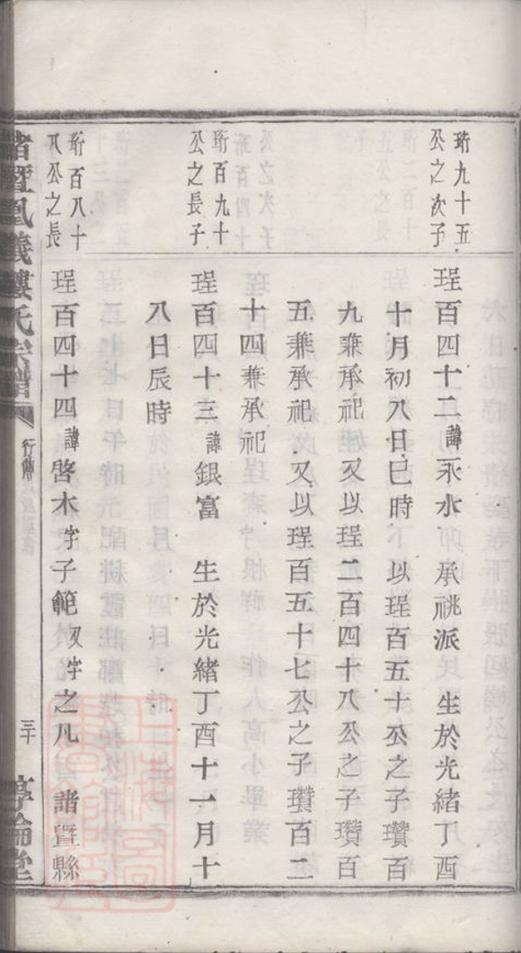 珩九十五
公之次子
珵百四十二諱永水 承祧派 生於光緒丁酉
十月初八日巳時 以珵百五十公之子瓚百
九兼承祀 又以珵二百四十八公之子瓚百
五兼承祀 又以珵百五十七公之子瓚百二
十四兼承祀
珩百九十
公之長子
珵百四十三諱銀富 生於光緒丁酉十一月十
八日辰時
珩百八十
八公之長
珵百四十四諱啓木字子範又字之凡 諸暨縣
諸暨鳳儀樓氏宗譜
行傳
三十
惇倫堂